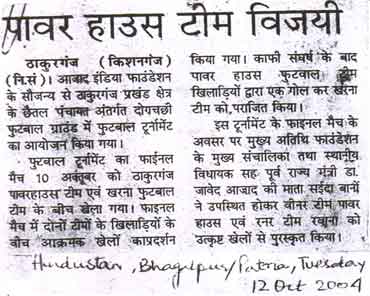 पावर हाउस टीम विजयी
ठाकुरगंज (किशनगंज)
(नि.सं)। आजाद इंडिया फाउंडेशन
के सौजन्य से ठाकुरगंज प्रखंड क्षेत्र
के छैतल पंचायत अंतर्गत दोगच्छी
फुटबाल ग्राउंड में फुटबाल टूर्नामेंट
का आयोजन किया गया।
फुटबाल टूर्नामेंट का फाईनल
मैच 10 अक्तूबर को ठाकुरगंज
पावरहाउस टीम एवं खरना फुटबाल
टीम के बीच खेला गया। फाइनल
मैच में दोनों टीमों के खिलाड़ियों के
बीच आक्रमक खेलों काप्रदर्शन
किया गया। काफी संघर्ष के बाद
पावर हाउस फुटवाल टीम
खिलाड़ियों द्वारा एक गोल कर खरना
टीम को,पराजित किया।
इस टूर्नामेंट के फाइनल मैच के
अवसर पर मुख्य अतिथि फाउंडेशन
के मुख्य संचालिका तथा स्थानीय
विधायक सह पूर्व राज्य मंत्री डा.
जावेद आजाद की माता सईदा बानों
ने उपस्थित होकर वीनर टीम पावर
हाउस एवं रनर टीम खानों को
उत्कृष्ट खेलों से पुरस्कृत किया।
Hindustan, Bhagalpur/Patna, Tuesday
12 Oct 2004